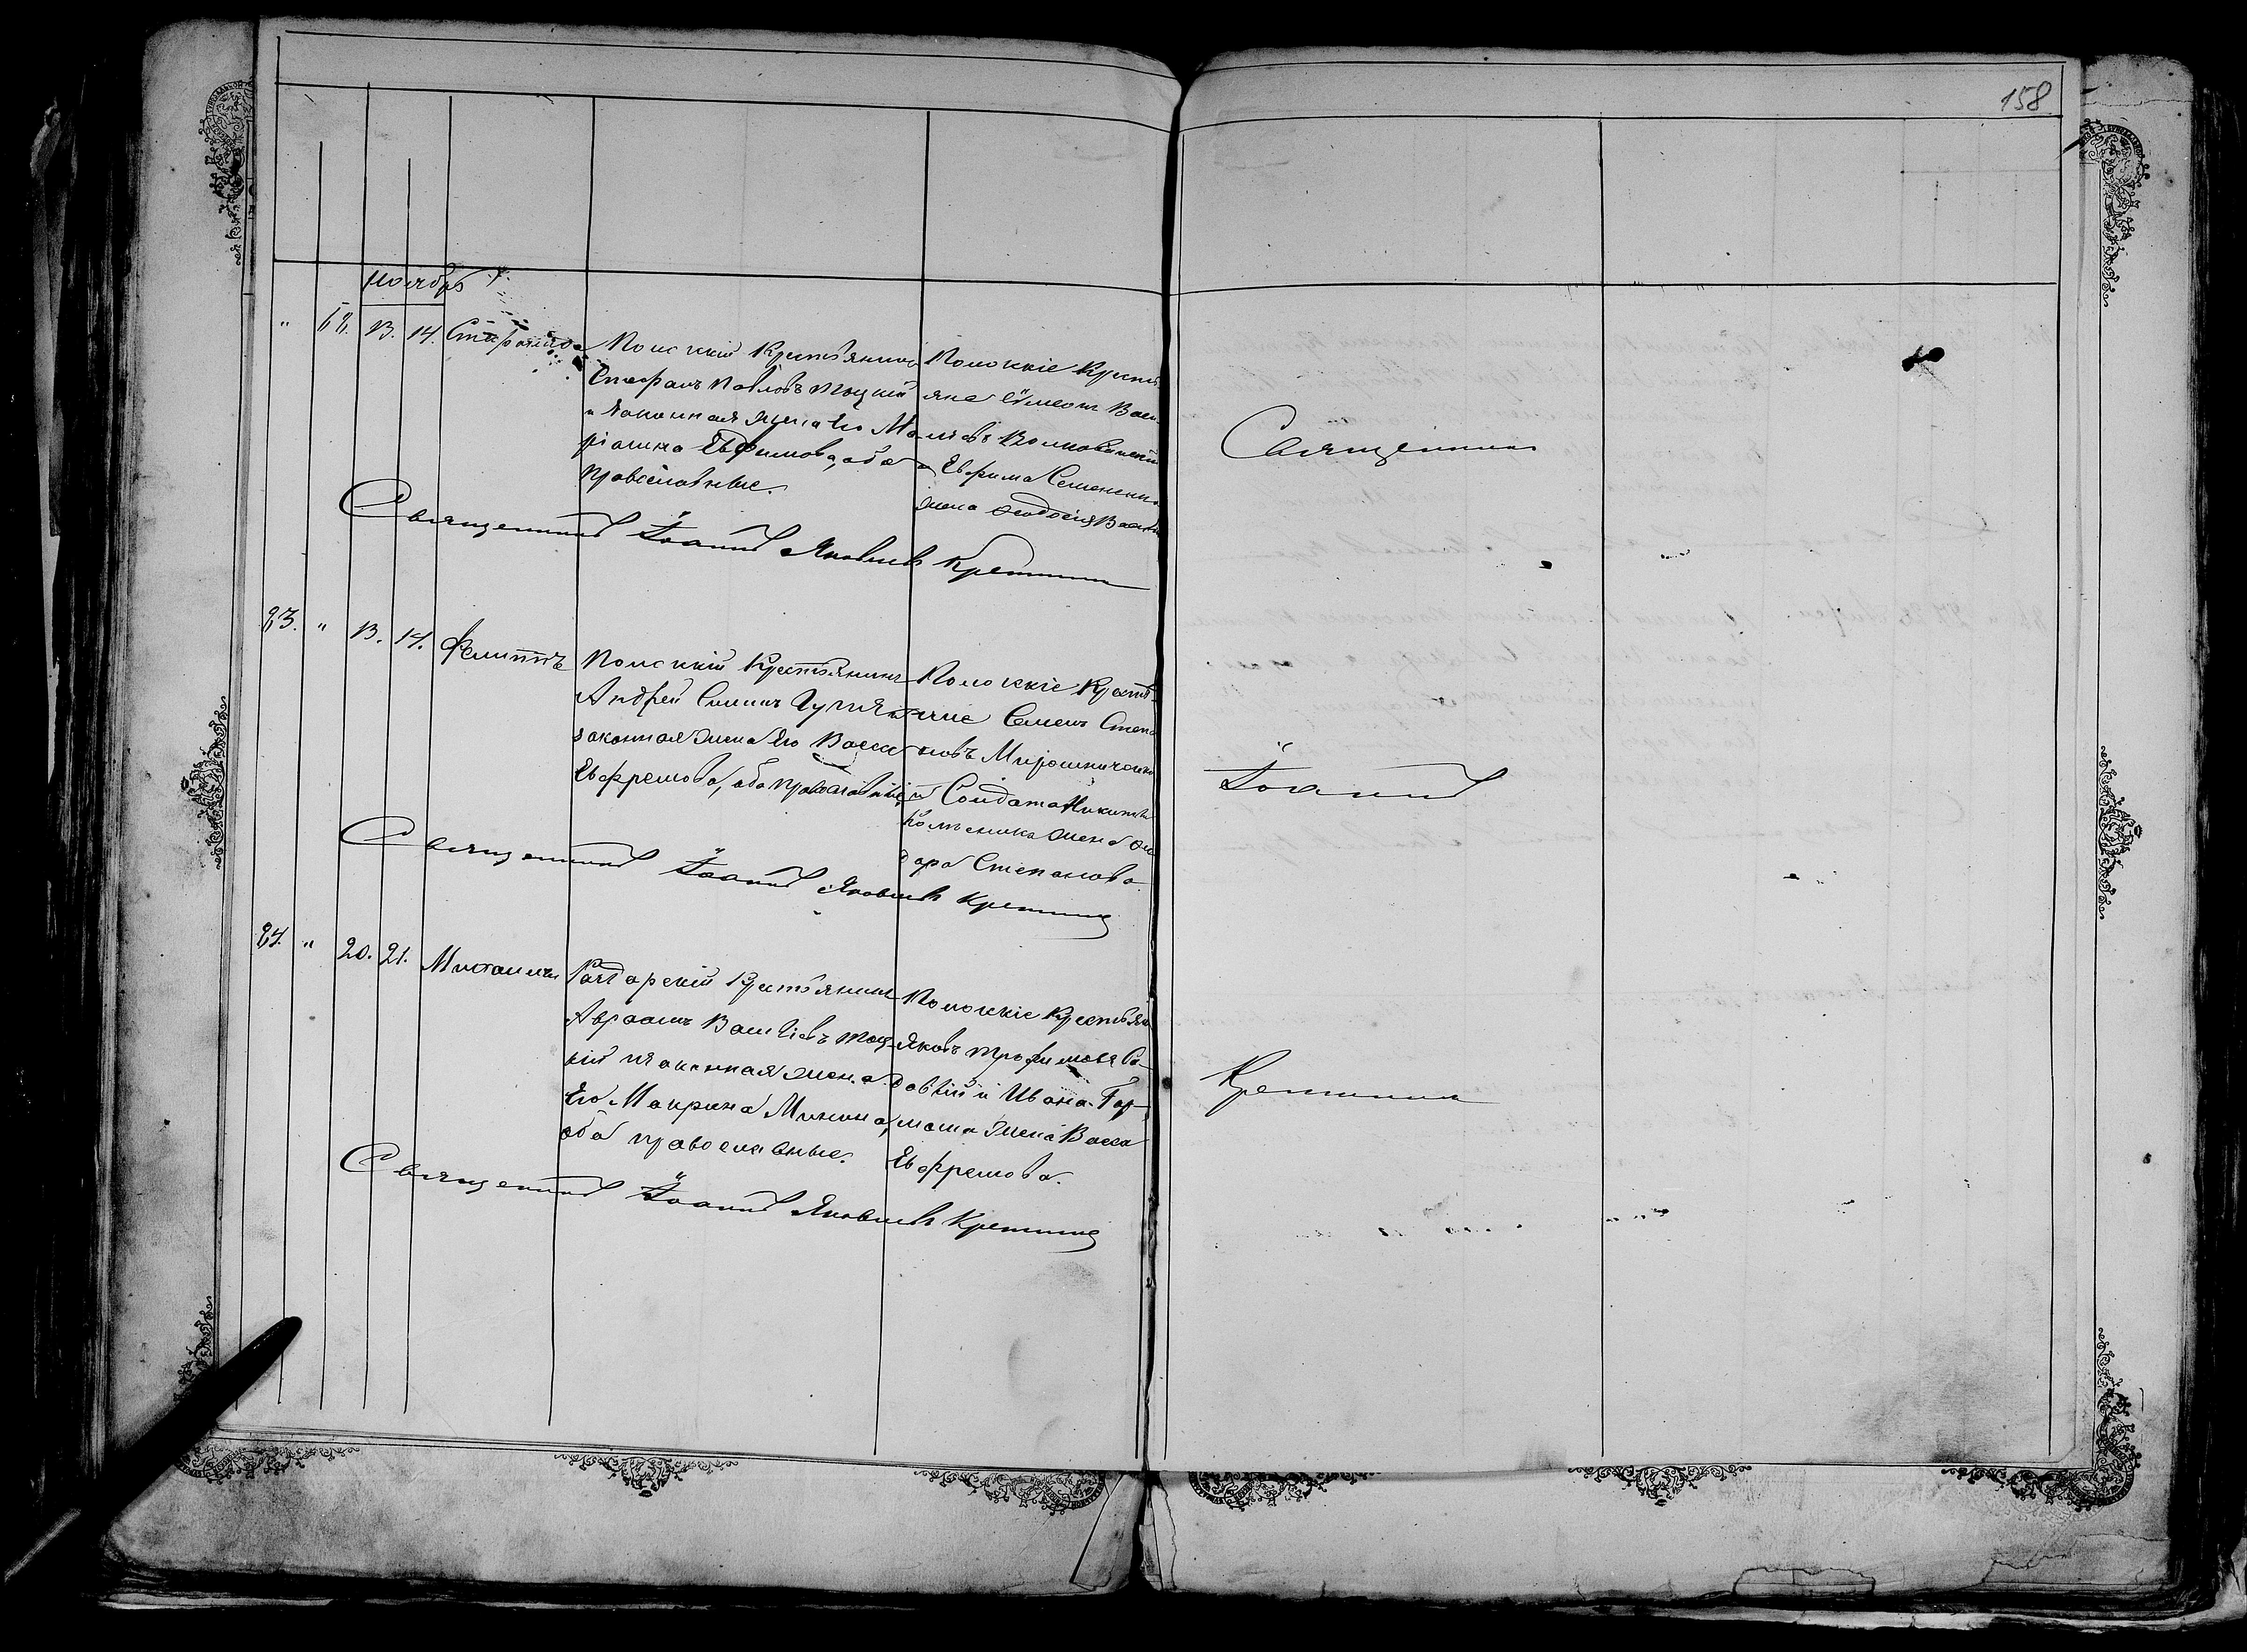 158
ноябрь
" 62. 13. 14. Стефанида
Полоскій Крестьянинъ
Стефанъ Павловъ Троцкій
и законная жена его Ма
ріанна Евфимова, оба
православные.
Полоскіе Кресть
яне Сѵмеонъ Васи
ліевъ
и Евфима Семенени
жена Ѳеодосія Васил
Священникъ Іоаннъ Яковлевъ Кремнинъ
23. " 13. 14. Филиппъ
Полоскій Крестьянинъ
Андрей Симинъ и
законная жена его Васса
Евфремова, оба православные
Полоскіе Кресть
яне Семенъ Степа
новъ Мирошниченко
и Солдата Никиты
жена Ѳео
дора Степанова
Священникъ Іоаннъ Яковлевъ Кремнинъ
24. " 20. 21. Михаилъ
Крестьянинъ
Авраамъ Василіевъ Троц
кій и законная жена
его Макрина Минина,
оба православные.
Полоскіе Крестьяне
Яковъ Трофимовъ Са
довій и Ивана Гар
маша жена Васса
Евфремова.
Священникъ Іоаннъ Яковлевъ Кремнинъ
Священникъ
Іоаннъ
Кремнинъ